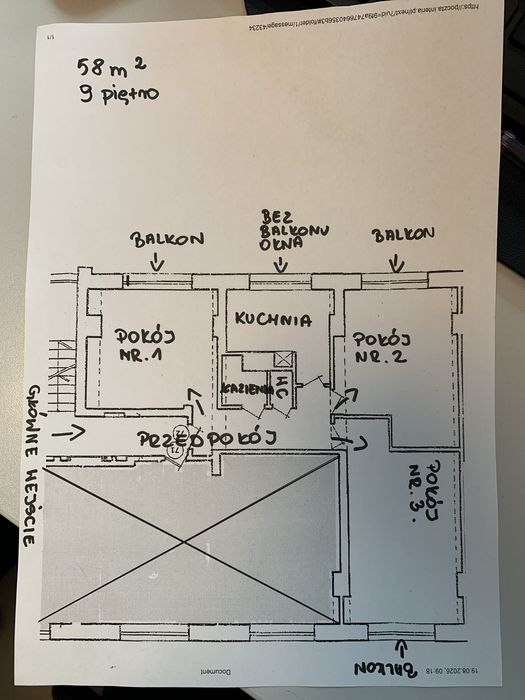 https://poczta.interia.pl/next/?uid=9f9a7476640356b3#folder/1/message/43234
1/1
58 m²
9 piętro
BALKON
BEZ
BALKONU
OKNA
BALKON
POKÓJ
NR.1
KUCHNIA
POKÓJ
NR.2
ŁAZIENKA
WC
GŁÓWNE WEJŚCIE
PRZEDPOKÓJ
72
71
POKÓJ
NR.3.
BALKON
Document
19.08.2026, 09:18